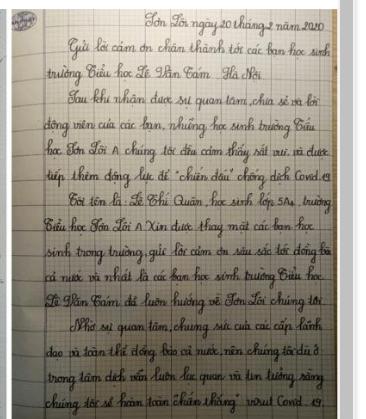 Sơn Lôi ngày 20 tháng 2 năm 2020
Gửi lời cảm ơn chân thành tới các bạn học sinh
trường Tiểu học Lê Văn Tám Hà Nội
Sau khi nhận được sự quan tâm, chia sẻ và lời
động viên của các bạn, những học sinh trường Tiểu
học Sơn Lôi A chúng tôi đều cảm thấy rất vui và được
tiếp thêm động lực để "chiến đấu" chống dịch Covid.19
Tôi tên là: Lê Chí Quân, học sinh lớp 5A4, trường
Tiểu học Sơn Lôi A Xin được thay mặt các bạn học
sinh trong trường, gửi lời cảm ơn sâu sắc tới đồng bào
cả nước và nhất là các bạn học sinh trường Tiểu học
Lê Văn Tám đã luôn hướng về Sơn Lôi chúng tôi
Nhờ sự quan tâm, chung sức của các cấp lãnh
đạo và toàn thể đồng bào cả nước, nên chúng tôi dù ở
trong tâm dịch vẫn luôn lạc quan và tin tưởng rằng
chúng tôi sẽ hoàn toàn "chiến thắng" virut Covid.19.